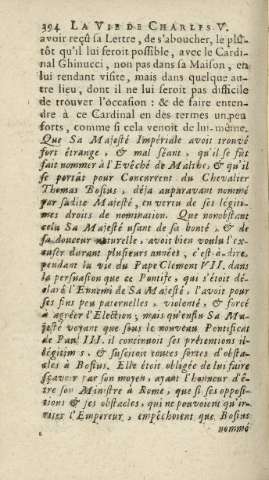 394 LA VIE DE CHARLES V.
avoir reçû sa Lettre, de s'aboucher, le plû-
tôt qu'il lui seroit possible, avec le Cardi-
nal Ghinucci, non pas dans sa Maison, en
lui rendant visite, mais dans quelque au-
tre lieu, dont il ne lui seroit pas difficile
de trouver l'occasion: & de faire enten-
dre à ce Cardinal en des termes un peu
forts, comme si cela venoit de lui-même.
Que Sa Majesté Impériale avoit trouvé
fort étrange, & mal séant, qu'il se fût
fait nommer à l'Evêché de Malthe, & qu'il
se portât pour Concurrent du Chevalier
Thomas Bosius, déja auparavant nommé
par sadite Majesté, en vertu de ses légiti-
mes droits de nomination. Que nonobstant
cela Sa Majesté usant de sa bonté, & de
sa douceur naturelle, avoit bien voulu l'ex-
cuser durant plusieurs années, c'est-à-dire,
pendant la vie du Pape Clement VII. dans
la persuasion que ce Pontife, qui s'étoit dé-
claré l'Ennemi de Sa Majesté, l'avoit pour
ses fins peu paternelles, violenté, & forcé
à agréer l'Election; mais qu'enfin Sa Ma-
jesté voyant que sous le nouveau Pontificat
de Paul III. il continuoit ses prétentions il-
légitimes, & suscitoit toutes sortes d'obsta-
cles à Bosius. Elle étoit obligée de lui faire
sçavoir par son moyen, ayant l'honneur d'ê-
tre son Ministre à Rome, que si ses opposi-
tions & ses obstacles, qui ne pouvoient qu'ir-
riter l'Empereur, empêchoient que Bosius
nommé